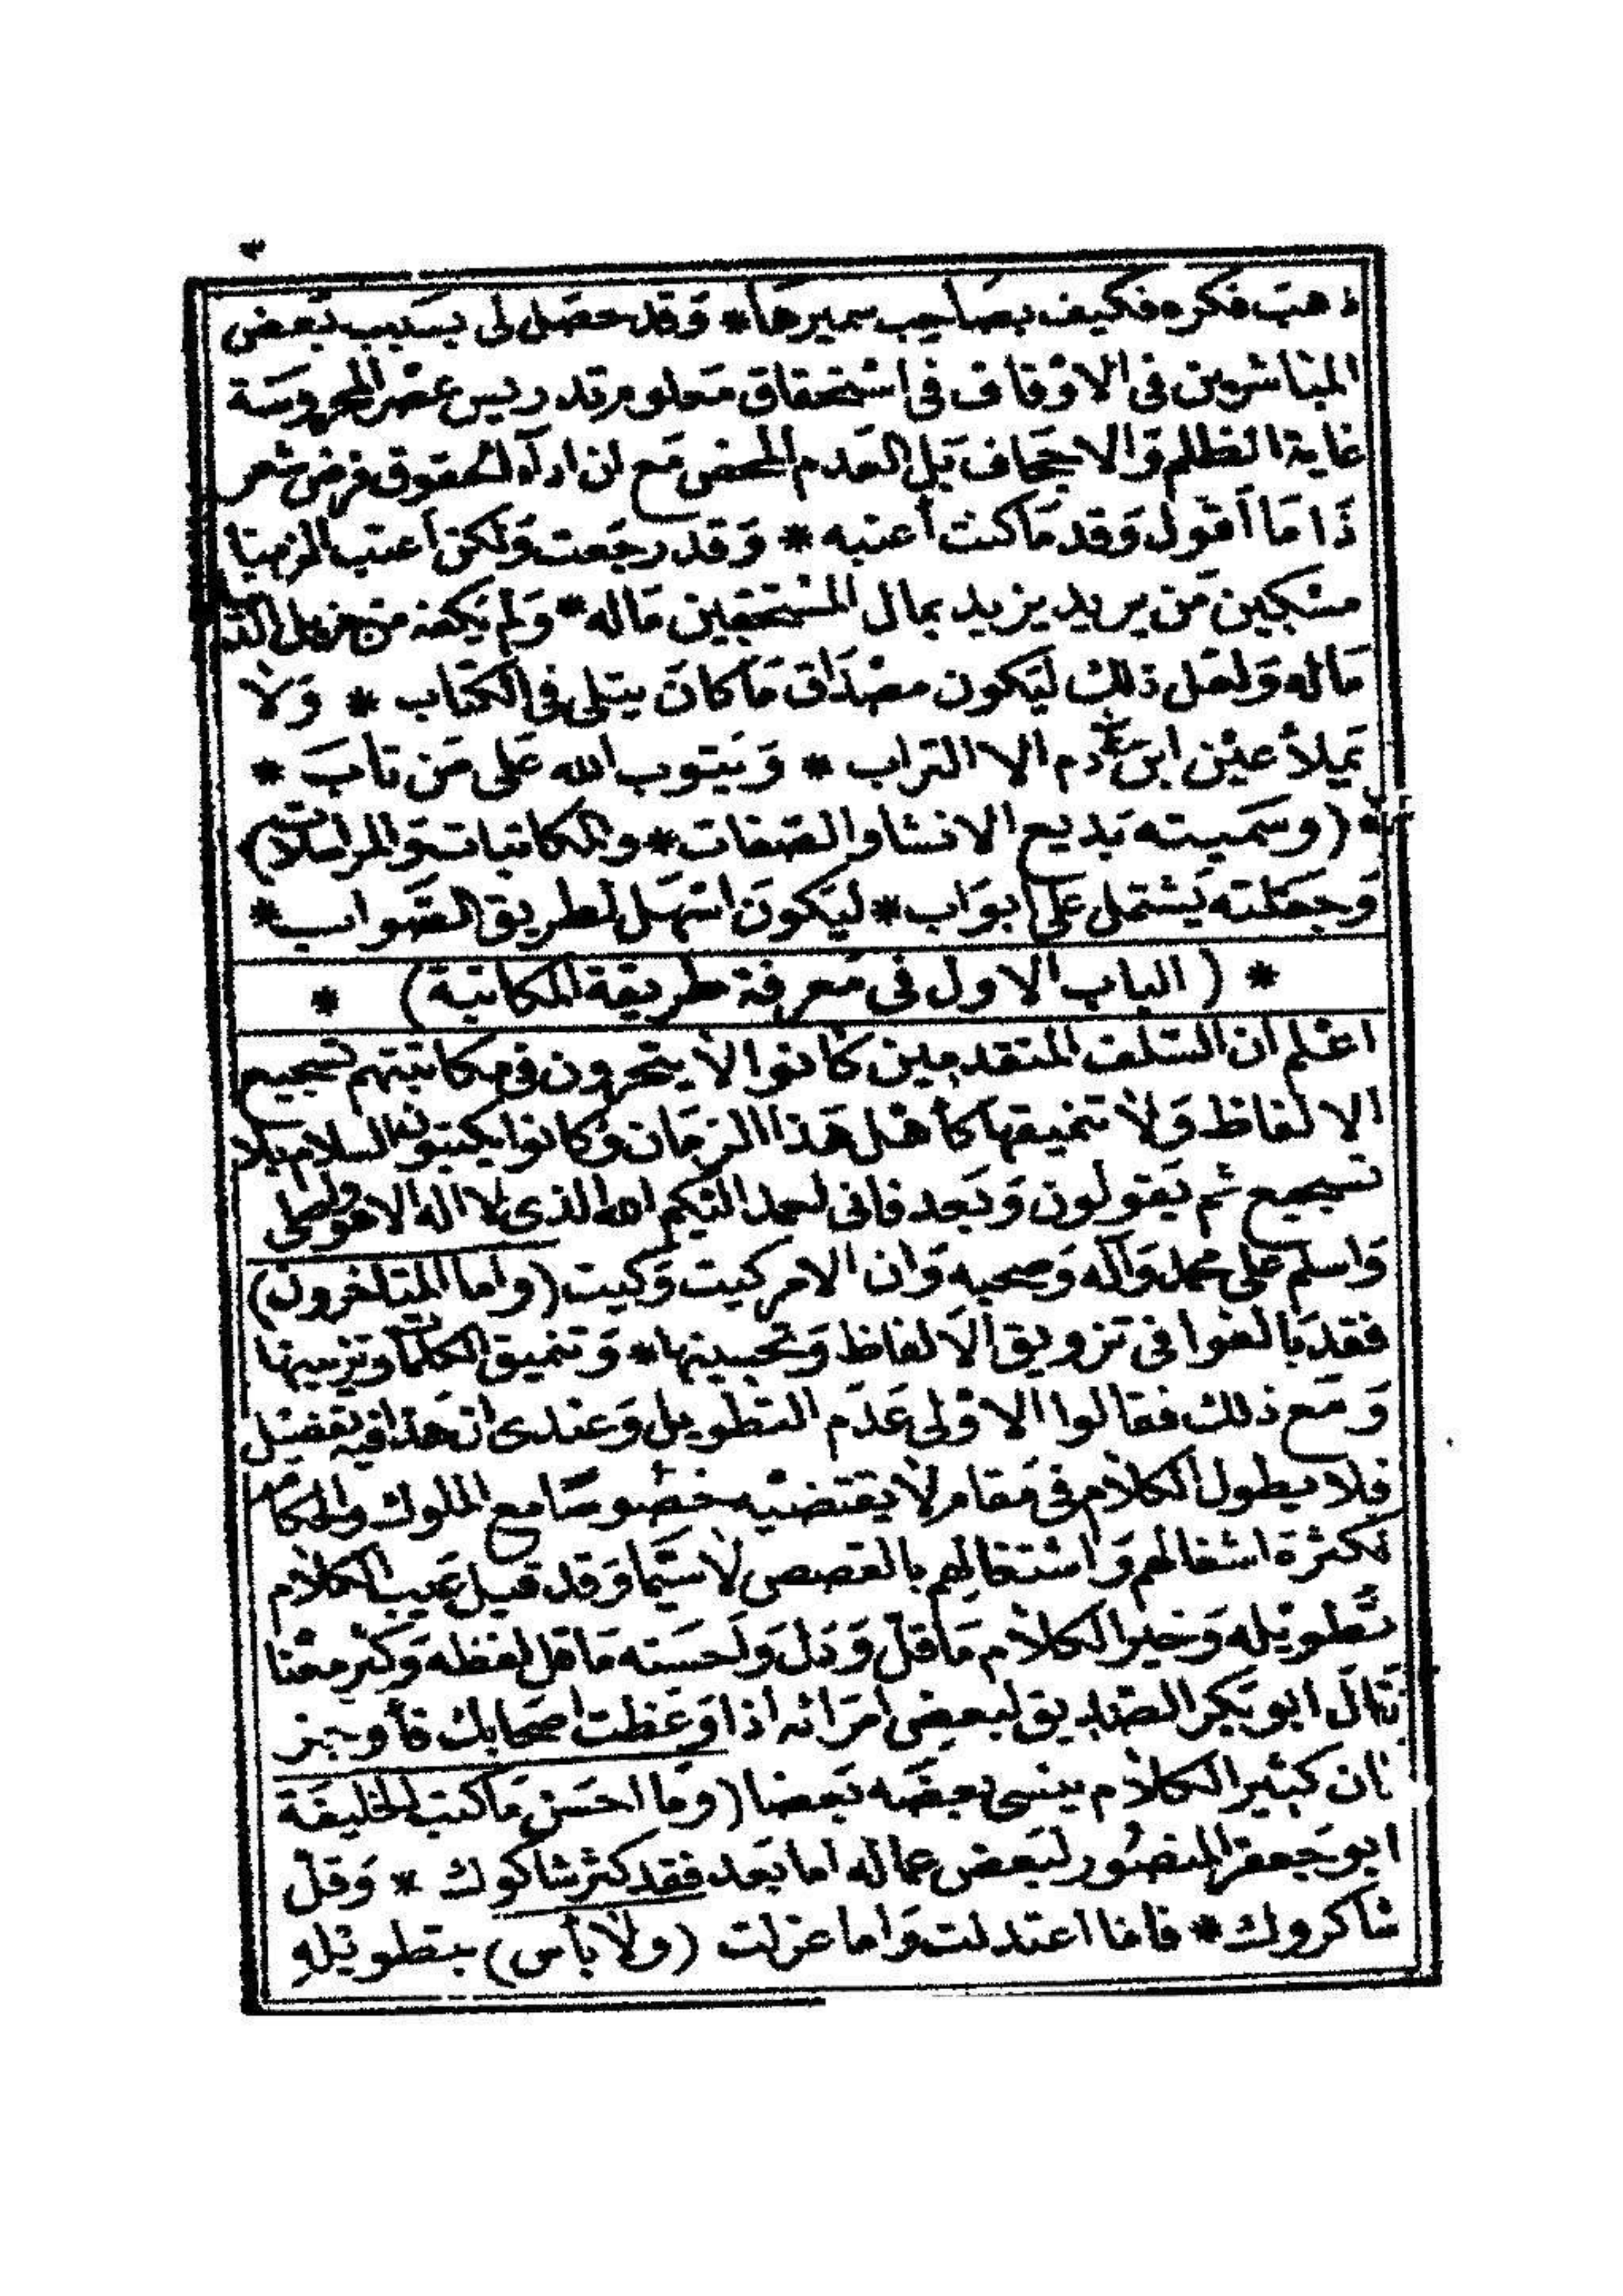 ٣
ذهب فكره فكيف بصاحب سميرها * وَقد حصَل لى بسَبب بَعض
المبَاشرين فى الاوْقاف فى اسْتحقاق مَعلوم تدريس بمصْر المحروسَة
غاية الظلم وَالاجحَاف بَل العَدم المحض مَع ان ادآء الحقوق فرض شعر
ذَا مَا أقول وَقد مَا كنت أعتبه * وَقد رجَعت وَلكن أعتب الزمنا
مسْكين مَن يريد يزيد بمال المسْتحقين مَاله * وَلم يَكفه من
مَاله وَلعَل ذلك ليَكون مصْدَاق مَا كانَ يتلى فى الكتاب * وَلا
يَملأ عيْن ابن آدم الا التراب * وَيَتوب الله عَلى مَن تابَ *
(وسَميته بَديع الانشا والصفات * والمكاتبات وَالمراسلات)
وَجعَلته يَشتمل على ابوَاب * ليَكونَ اسْهَل لطريق الصَّواب *
* (الباب الاول فى مَعرفة طريقة المكاتبة) *
اعْلم ان السَّلف المتقدمين كانوا لا يتحرون فى مكاتبتهم تسجيع
الالفاظ وَلا تنميقها كأهْل هَذا الزمَان وَكانوا يكتبون السلام بلا
تسجيع ثم يَقولون وَبَعد فانى احمد اليكم الله الذى لا اله الا هو واصلى
وَاسلم على محمد وَآله وَصحبه وَان الامر كيت وَكيت (واما المتأخرون)
فقد بَالغوا فى تزويق الالفاظ وَتحسينها * وَتنميق الكلمات وتزيينها
وَمَع ذلك فقالوا الاوْلى عَدَم التطويل وَعندى ان هَذا فيه تفضيل
فلا يطول الكلام فى مَقام لا يقتضيْه خصُوصًا مع الملوك والحكام
لكثرة اشغالهم وَاشتغالهم بالقصص لا سيَّما وَقد قيل عَيب الكلام
تَطويْله وَخير الكلام مَا قلّ وَدَل وَاحسَنه مَا قل لفظه وَكثر معْنا
قال ابو بَكر الصّديق لبعض امَرائه اذا وَعَظت اصحابك فأوجز
فان كثير الكلام ينسى بعضَه بَعضا (وَما احسَن مَا كتب الخليفة
ابو جَعفر المنصُور لبَعض عماله اما بَعد فقد كثر شاكوك * وَقلّ
شاكروك * فاما اعتدلت وَاما عزلت (ولا بأس) بتطويْلهِ